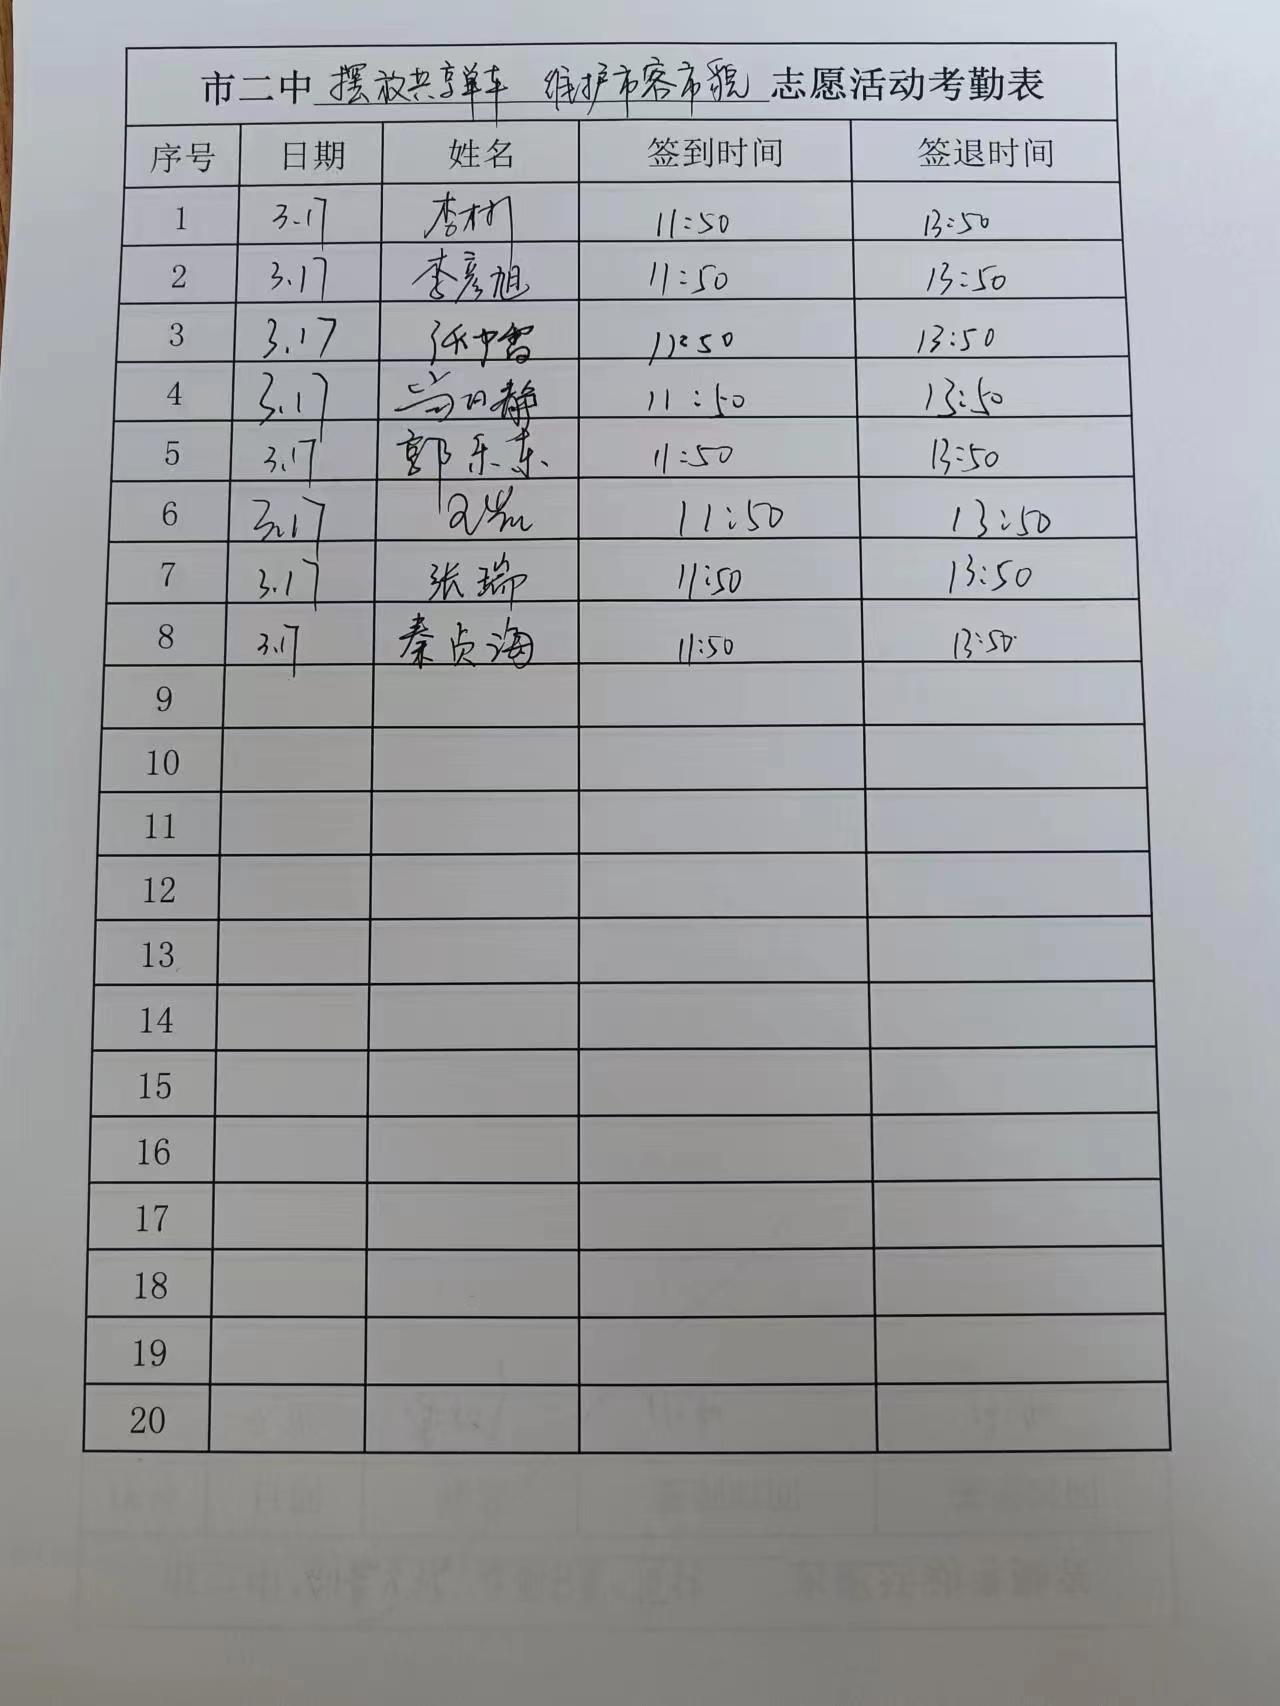 市二中 摆放共享单车 维护市容市貌 志愿活动考勤表
序号 日期 姓名 签到时间 签退时间
1 3.17 李树 11:50 13:50
2 3.17 李彦旭 11:50 13:50
3 3.17 11:50 13:50
4 3.17 11:50 13:50
5 3.17 郭乐东 11:50 13:50
6 3.17 11:50 13:50
7 3.17 张瑞 11:50 13:50
8 3.17 秦贞海 11:50 13:50
9
10
11
12
13
14
15
16
17
18
19
20